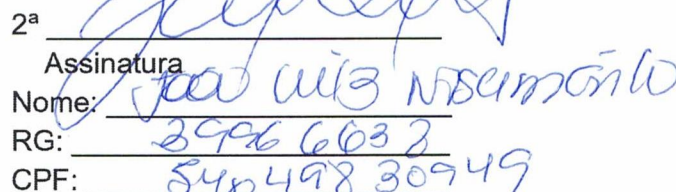 2ª
Assinatura
Nome: João Luiz Nascimento
RG: 39966632
CPF: 54049830949